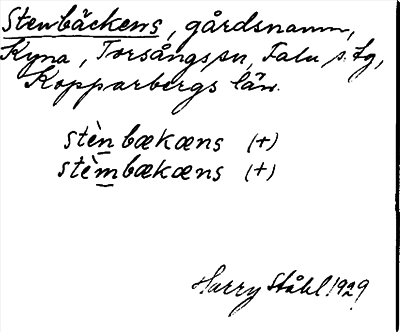 Stenbäckens, gårdsnamn,
Kyna, Torsångs sn, Falu s. tg,
Kopparbergs län.
stèn bækæns (+)
stèm bækæns (+)
Harry Ståhl 1929